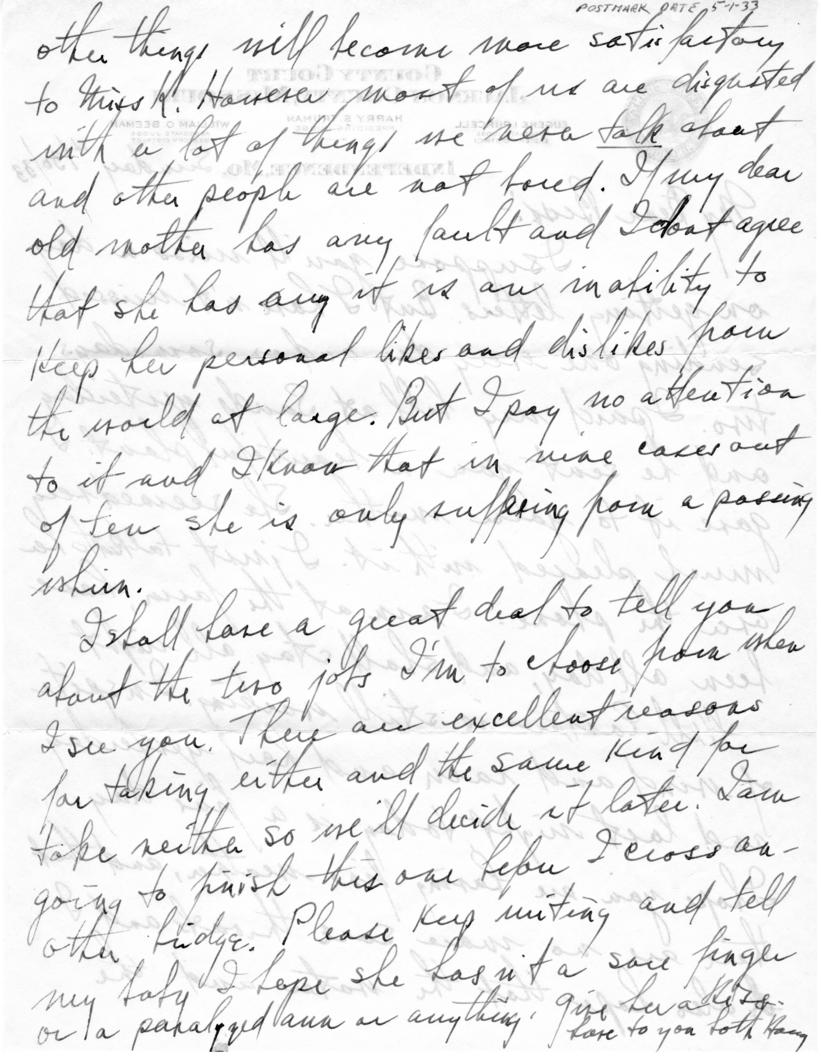 POSTMARK DATE 5-1-33
other things will become more satisfactory
to Miss K. However most of us are disgusted
with a lot of things we never talk about
and other people are not bored. If my dear
old mother has any fault and I dont agree
that she has any it is an inability to
keep her personal likes and dislikes from
the world at large. But I pay no attention
to it and I know that in nine cases out
of ten she is only suffering from a passing
whim.
I shall have a great deal to tell you
about the two jobs I'm to choose from when
I see you. There are excellent reasons
for taking either and the same kind for
take neither so we'll decide it later. I am
going to finish this one before I cross an-
other bridge. Please keep writing and tell
my baby I hope she hasn't a sore finger
or a paralyzed arm or anything. Give her a kiss.
Love to you both Harry